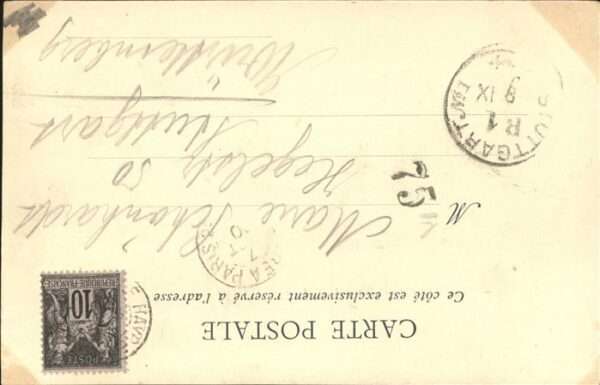 CARTE POSTALE
Ce côté est exclusivement réservé à l'adresse
POSTE
10
REPUBLIQUE FRANÇAISE
HAVRE A PARIS
M lle Marie Schönhardt
75
Hegelstr 50
Stuttgart
Württemberg
STUTTGART
R 1
9 IX